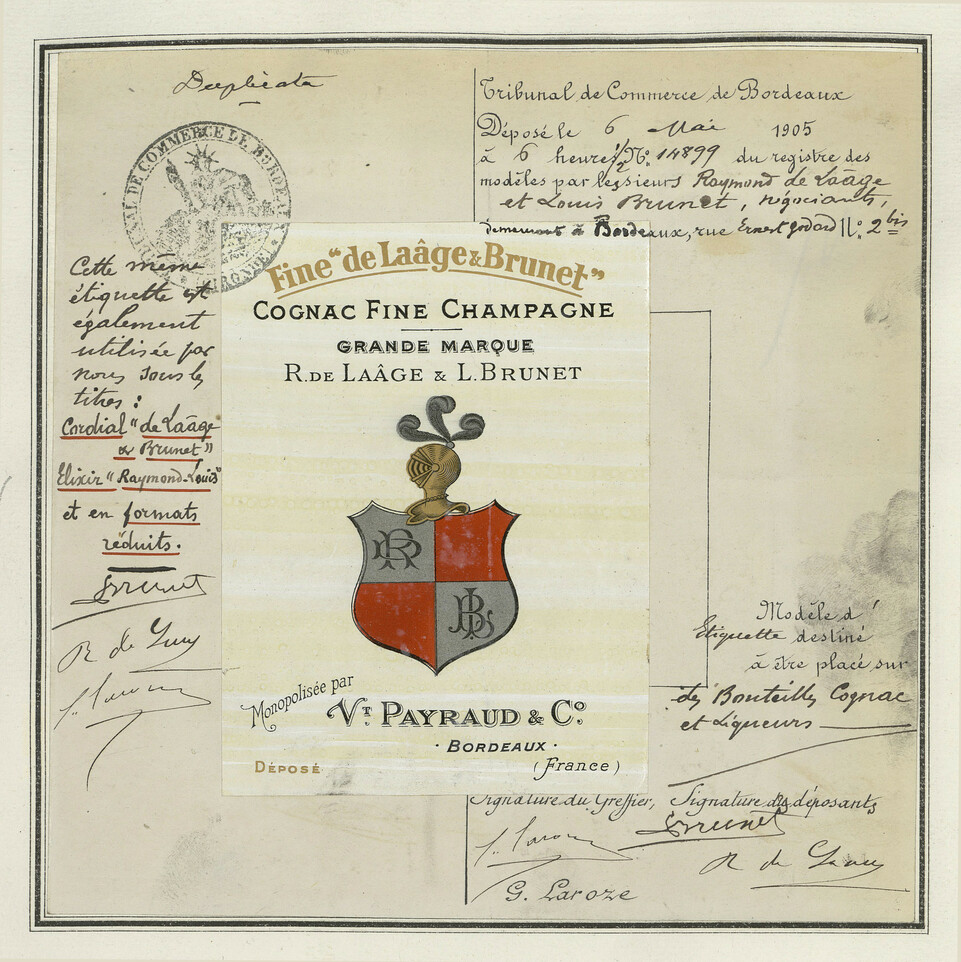 Duplicata
TRIBUNAL DE COMMERCE DE BORDEAUX
GIRONDE
Tribunal de Commerce de Bordeaux
Déposé le 6 Mai 1905
à 6 heures 1/2 No. 14899 du registre des
modèles par les sieurs Raymond de Laâge
et Louis Brunet, négociants,
demeurant à Bordeaux, rue Ernest Godard No. 2 bis
Cette même
étiquette est
également
utilisée par
nous sous les
titres :
Cordial "de Laâge
& Brunet"
Elixir "Raymond-Louis"
et en formats
réduits.
Brunet
R de Laage
Fine "de Laâge & Brunet"
COGNAC FINE CHAMPAGNE
GRANDE MARQUE
R. DE LAÂGE & L. BRUNET
R
LB
Monopolisée par
VT. PAYRAUD & CO.
· BORDEAUX ·
DÉPOSÉ
(France)
Modèle d'
Etiquette destiné
à être placé sur
des Bouteilles Cognac
et Liqueurs
Signature du Greffier, Signature des déposants
Brunet
R de Laage
G. Laroze